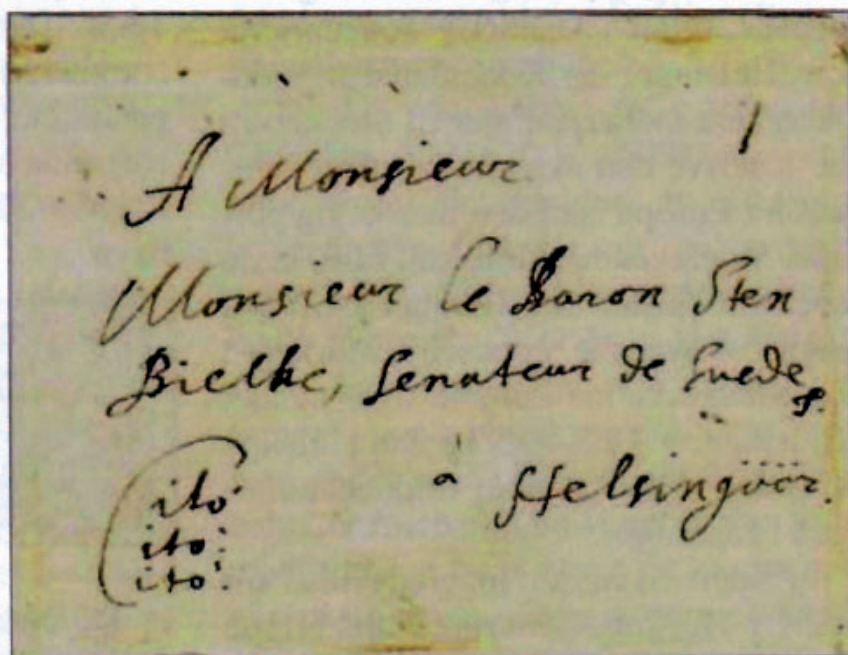 1
A Monsieur
Monsieur le Baron Sten
Bielke, Senateur de Suede
à Helsingöör.
Cito
ito:
ito: